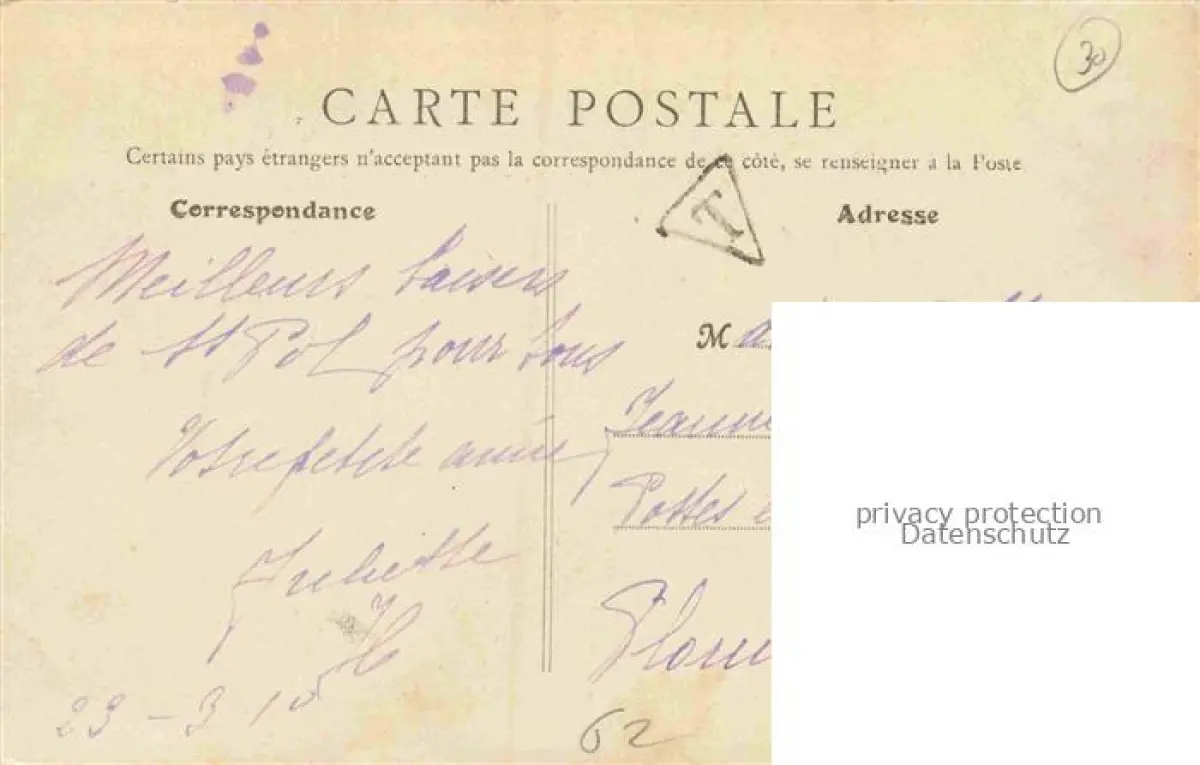 30
CARTE POSTALE
Certains pays étrangers n'acceptant pas la correspondance de ce côté, se renseigner a la Poste
T
Correspondance
Adresse
Meilleurs baisers
de St Pol pour tous
Votre petite amie
Juliette
H
23 - 3 10
M
Jeanne
Postes
62
privacy protection
Datenschutz